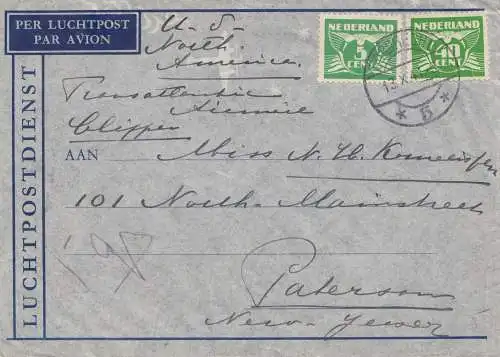 PER LUCHTPOST
PAR AVION
U-S-
North
America
NEDERLAND
5
CENT
NEDERLAND
10
CENT
Transatlantic
Airmail
Clipper
5
AAN Miss N. H.
101 North-Mainstreet
Paterson
New-Jersey
LUCHTPOSTDIENST